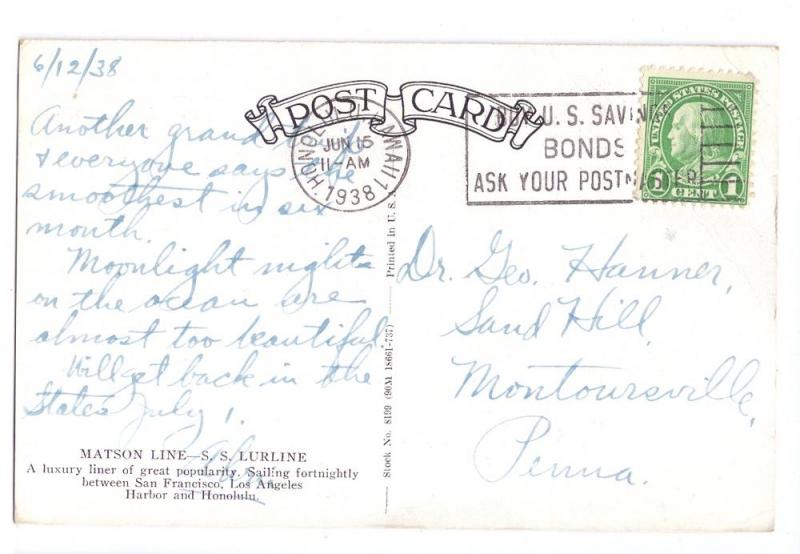 6/12/38
POST CARD
HONOLULU HAWAII
JUN 15
11-AM
1938
BUY U.S. SAVINGS
BONDS
ASK YOUR POSTMASTER
UNITED STATES POSTAGE
1 CENT 1
Another grand
& everyone says the
smoothest in six
month.
Moonlight nights
on the ocean are
almost too beautiful.
Will get back in the
States July 1.
MATSON LINE—S. S. LURLINE
A luxury liner of great popularity. Sailing fortnightly
between San Francisco, Los Angeles
Harbor and Honolulu.
Stock No. 8199 (90M 18661-737)
Printed in U. S. A.
Dr. Geo. Hanner,
Sand Hill,
Montoursville,
Penna.